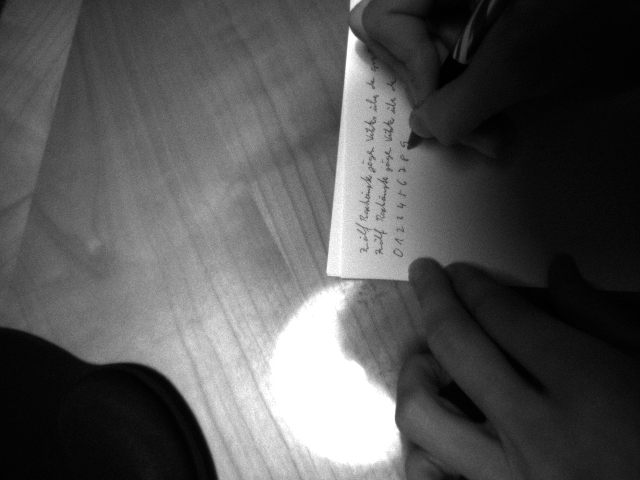 zwölf Boxkämpfe jagen Vikto über de
zwölf Boxkämpfe jagen Vikto über de
0 1 2 3 4 5 6 7 8 9